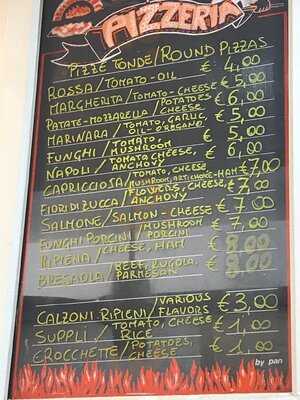 PIZZERIA
PIZZE TONDE/ROUND PIZZAS
ROSSA/TOMATO-OIL € 4,00
MARGHERITA/TOMATO-CHEESE € 5,00
PATATE-MOZZARELLA/POTATOES CHEESE € 6,00
MARINARA/TOMATO, GARLIC, OIL-OREGANO € 5,00
FUNGHI/TOMATO MUSHROOM € 5,00
NAPOLI/TOMATO CHEESE, ANCHOVY € 6,00
CAPRICCIOSA/TOMATO, CHEESE MUSHROOM, ARTICHOKE-HAM €7,00
FIORI DI ZUCCA/FLOWERS, CHEESE, ANCHOVY € 7,00
SALMONE/SALMON-CHEESE € 7,00
FUNGHI PORCINI/MUSHROOM PORCINI € 7,00
RIPIENA/CHEESE, HAM € 8,00
BRESAOLA/BEEF, RUGOLA, PARMESAN € 8,00
CALZONI RIPIENI/VARIOUS FLAVORS € 3,00
SUPPLI/TOMATO, CHEESE RICE € 1,00
CROCCHETTE/POTATOES, CHEESE € 1,00
by pan